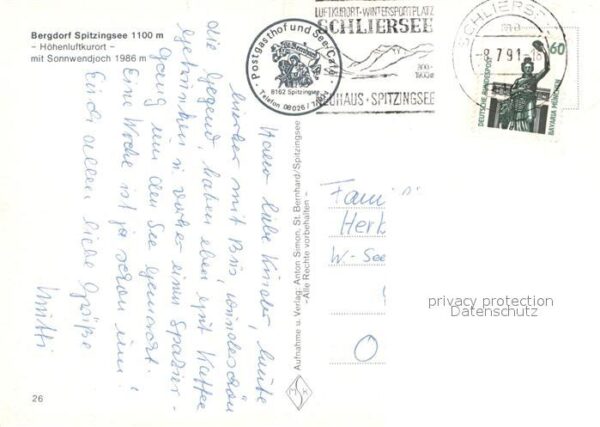 Bergdorf Spitzingsee 1100 m
– Höhenluftkurort –
mit Sonnwendjoch 1986 m
Postgasthof und See-Café
St. Bernhard
8162 Spitzingsee
Telefon 08026/
LUFTKURORT-WINTERSPORTPLATZ
SCHLIERSEE
800-
1800m
NEUHAUS · SPITZINGSEE
SCHLIERSEE
-8.7.91-18
60
DEUTSCHE BUNDESPOST
BAVARIA MÜNCHEN
Hallo liebe Kinder, heute
hierher mit Bus, wunderschön
die Gegend, haben eben erst Kaffee
getrunken u. vorher einen Spazier-
gang um den See gemacht.
Eine Woche ist ja schon um!
Euch allen liebe Grüße
Mutti
Aufnahme u. Verlag: Anton Simon, St. Bernhard/Spitzingsee
– Alle Rechte vorbehalten –
Fam
Her
W-See
O
privacy protection
Datenschutz
26